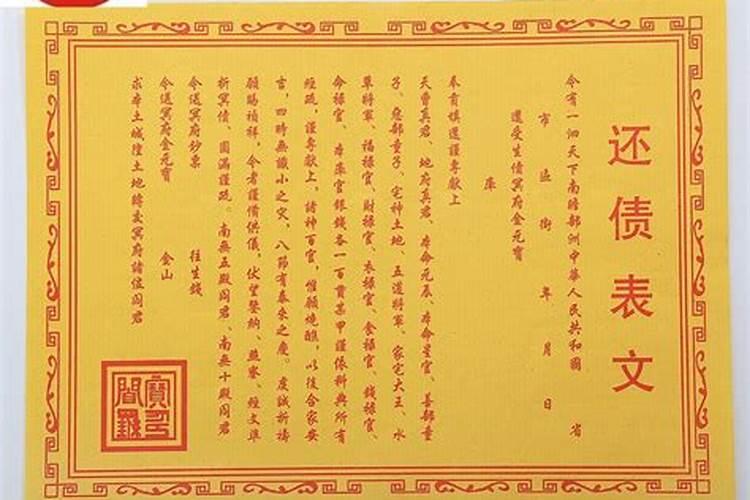 还债表文
今有一泗天下南瞻部洲中華人民共和國 省
市 區 街 年 月 日
還受生債冥府金元寶
庫
奉有填還謹專獻上
天曹真君、地府真君、本命元辰、本命星官、善部童
子、惡部童子、宅神土地、五道將軍、家宅大王、水
草將軍、福祿官、財祿官、衣祿官、食祿官、錢祿官、
命祿官、本庫官銀錢各一百貫某甲謹依科典所有
經疏，謹專獻上，諸神百官，惟願燒醮，以後合家安
吉，四時無識小之灾，八節有泰來之慶。虔誠祈禱
願賜禎祥，今者謹備供儀，伏望鑒納、燕寮、經文準
折冥債、圓滿謹疏。南無五殿阎君、南無十殿阎君
今送冥府鈔票 往生錢
今送冥府金元寶 金山
求本土城隍土地轉交冥府諸位阎君